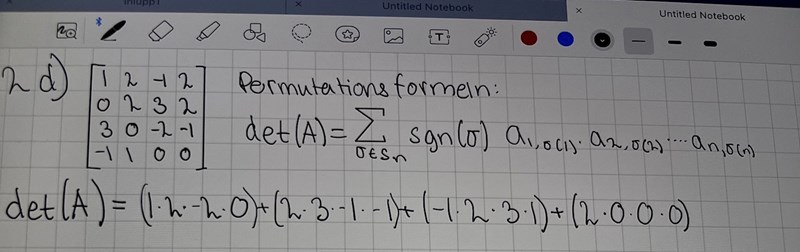 Untitled Notebook
Untitled Notebook
2d) [1 2 -1 2
0 2 3 2
3 0 -2 -1
-1 1 0 0] Permutationsformeln:
det(A) = ∑ sgn(σ) a₁,σ(1) · a₂,σ(2) ··· aₙ,σ(n)
σ∈Sₙ
det(A) = (1·2·-2·0)+(2·3·-1·-1)+(-1·2·3·1)+(2·0·0·0)